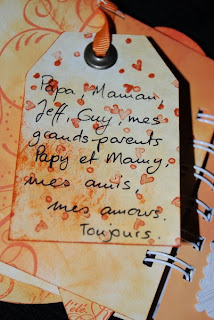 Papa, Maman,
Jeff, Guy, mes
grands-parents
Papy et Mamy,
mes amis,
mes amours.
Toujours.